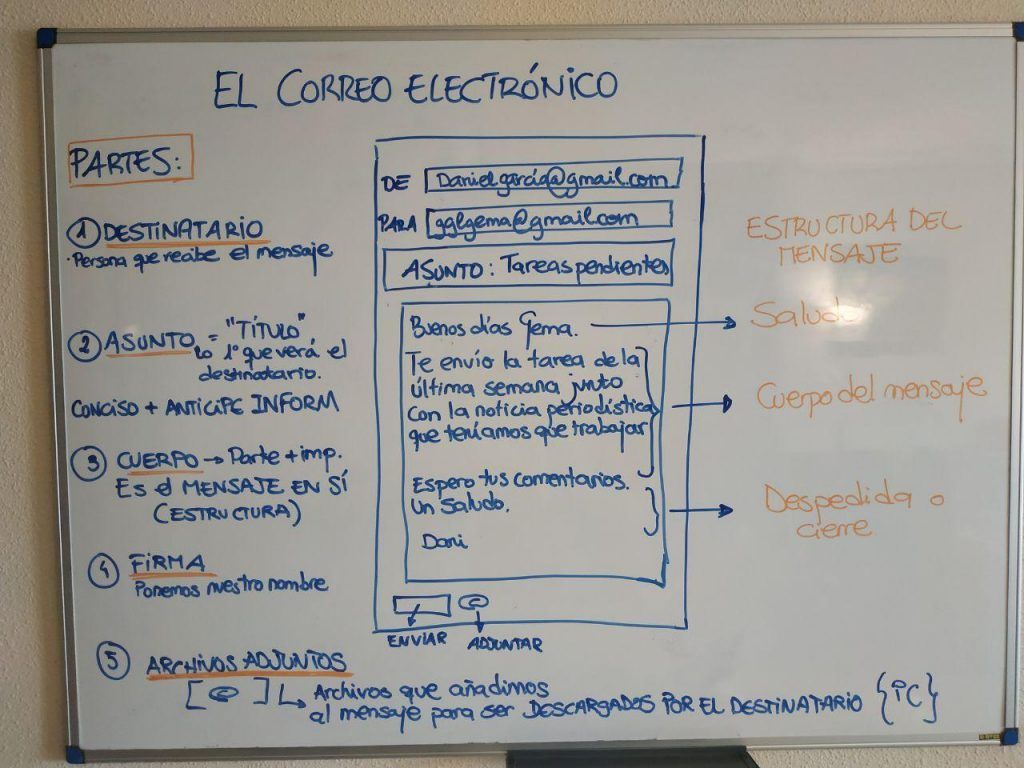 EL CORREO ELECTRÓNICO
PARTES:
① DESTINATARIO
· Persona que recibe el mensaje
② ASUNTO = "TÍTULO"
↳ 1º que verá el
destinatario.
CONCISO + ANTICIPE INFORM
③ CUERPO → Parte + imp.
ES el MENSAJE EN SÍ
(ESTRUCTURA)
④ FIRMA
Ponemos nuestro nombre
⑤ ARCHIVOS ADJUNTOS
Archivos que añadimos
al mensaje para ser DESCARGADOS POR EL DESTINATARIO
DE Daniel.garcia@gmail.com
PARA gglgema@gmail.com
ASUNTO: Tareas pendientes
Buenos días Gema.
Te envío la tarea de la
última semana junto
con la noticia periodística
que teníamos que trabajar
Espero tus comentarios.
Un saludo.
Dani
ENVIAR ADJUNTAR
ESTRUCTURA DEL
MENSAJE
Saludo
Cuerpo del mensaje
Despedida o
cierre